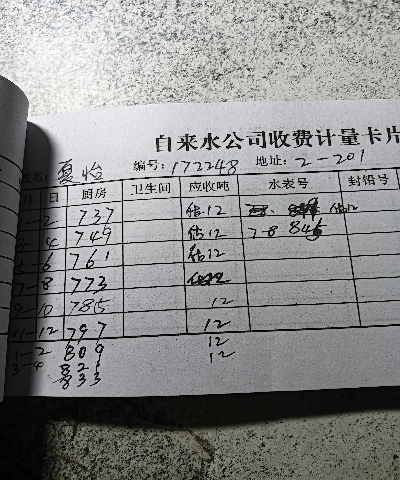 自来水公司收费计量卡片
名: 夏怡 编号: 172248 地址: 2-201
月 日 厨房 卫生间 应收吨 水表号 封铅号
-2 737 估12 估12
-4 749 估12 7-8 845
5-6 761 估12
7-8 773
9-10 785 12
11-12 797 12
1-2 809 12
3-4 821 12
833